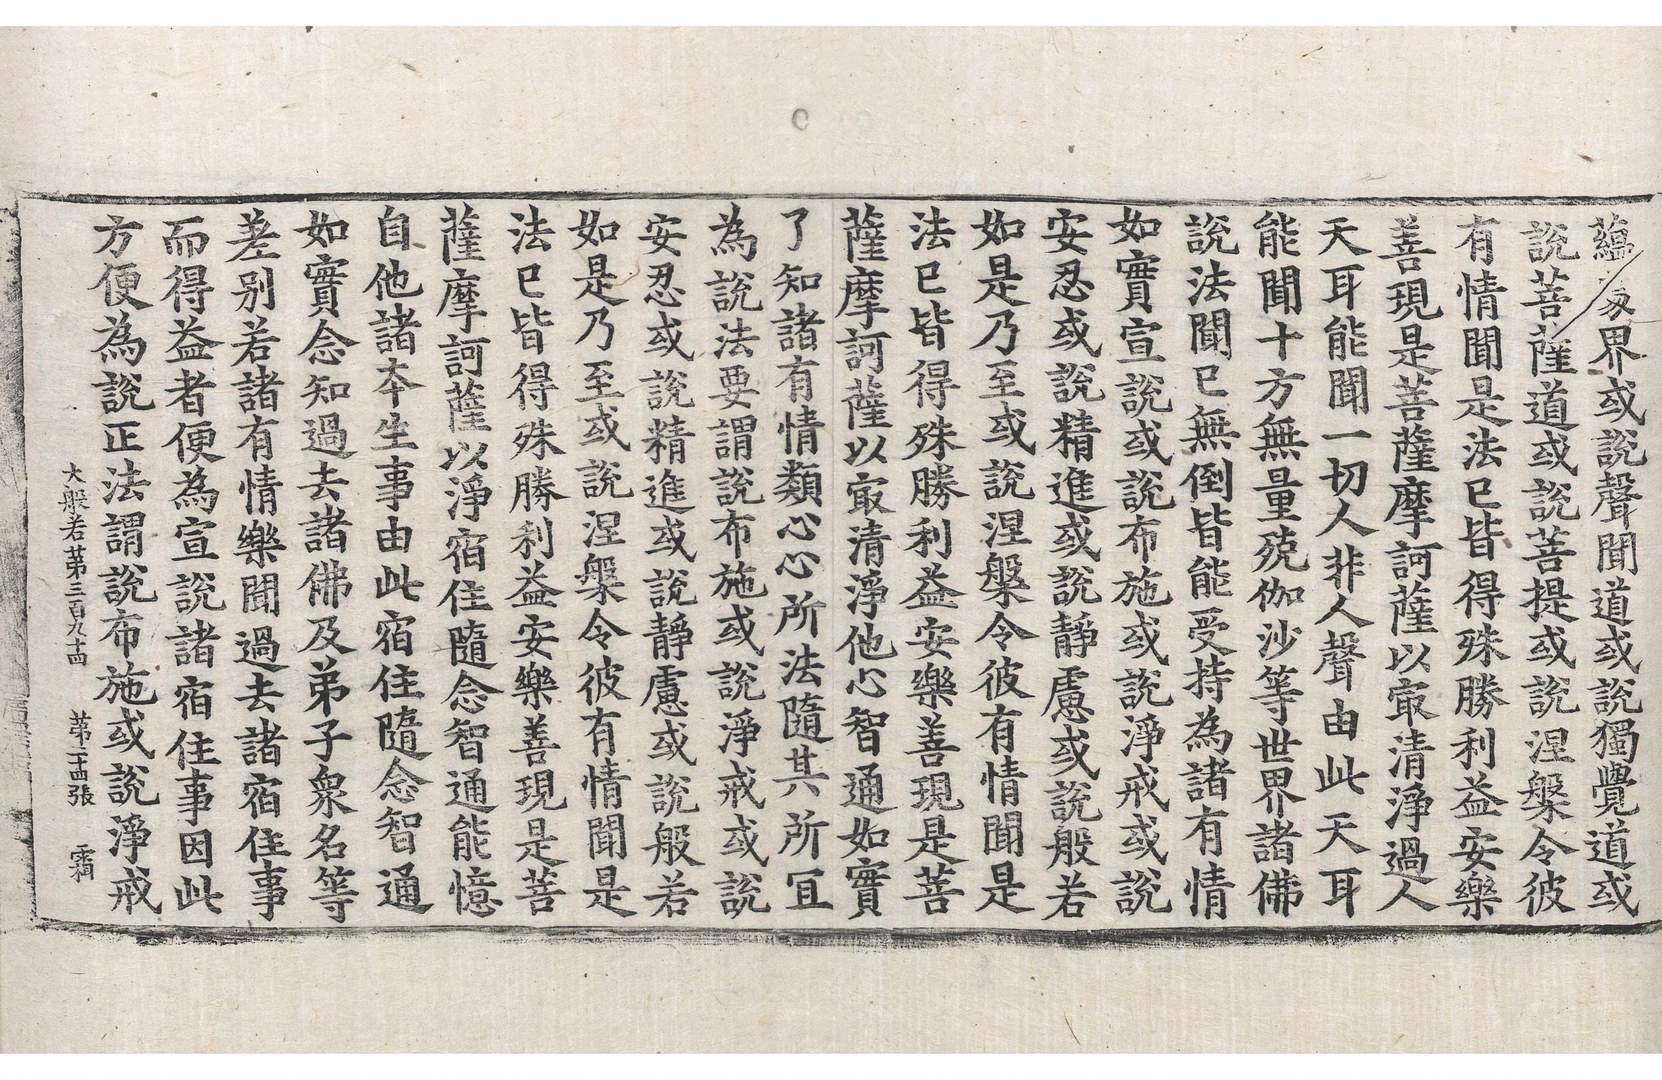 蘊處界或說聲聞道或說獨覺道或
說菩薩道或說菩提或說涅槃令彼
有情聞是法已皆得殊勝利益安樂
善現是菩薩摩訶薩以冣清淨過人
天耳能聞一切人非人聲由此天耳
能聞十方無量殑伽沙等世界諸佛
說法聞已無倒皆能受持為諸有情
如實宣說或說布施或說淨戒或說
安忍或說精進或說靜慮或說般若
如是乃至或說涅槃令彼有情聞是
法已皆得殊勝利益安樂善現是菩
薩摩訶薩以冣清淨他心智通如實
了知諸有情類心心所法隨其所宜
為說法要謂說布施或說淨戒或說
安忍或說精進或說靜慮或說般若
如是乃至或說涅槃令彼有情聞是
法已皆得殊勝利益安樂善現是菩
薩摩訶薩以淨宿住隨念智通能憶
自他諸本生事由此宿住隨念智通
如實念知過去諸佛及弟子衆名等
差別若諸有情樂聞過去諸宿住事
而得益者便為宣說諸宿住事因此
方便為說正法謂說布施或說淨戒
大般若第三百九十四 第二十四張 霜